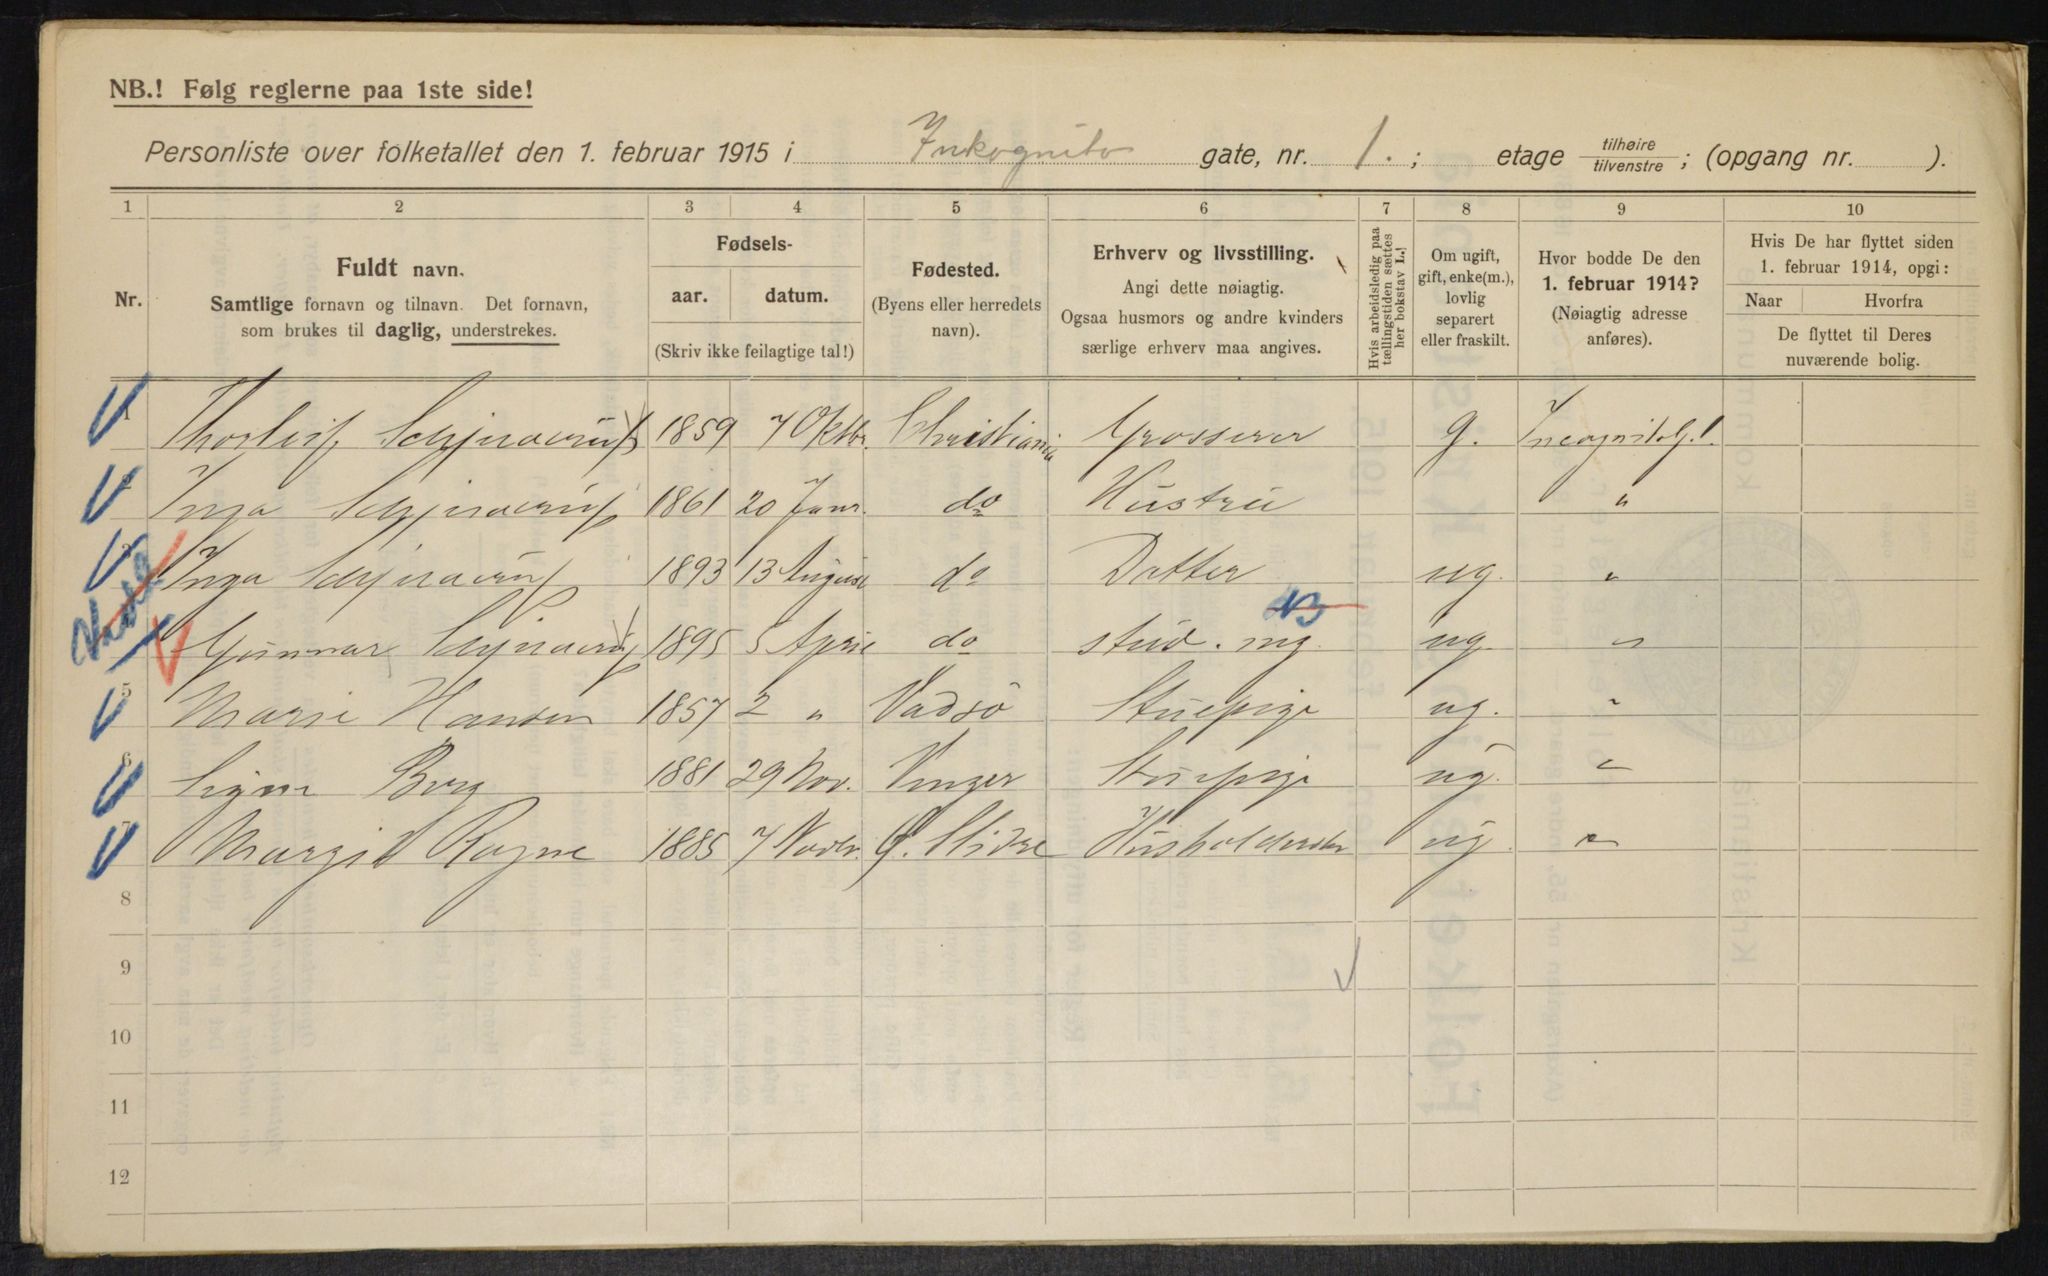 NB.! Følg reglerne paa 1ste side!
Personliste over folketallet den 1. februar 1915 i Inkognito gate, nr. 1. ; etage tilhøire tilvenstre ; (opgang nr. ).
1 2 3 4 5 6 7 8 9 10
Nr.
Fuldt navn.
Samtlige fornavn og tilnavn. Det fornavn,
som brukes til daglig, understrekes.
Fødsels-
aar. datum.
(Skriv ikke feilagtige tal!)
Fødested.
(Byens eller herredets
navn).
Erhverv og livsstilling.
Angi dette nøiagtig.
Ogsaa husmors og andre kvinders
særlige erhverv maa angives.
Hvis arbeidsledig paa
tællingstiden sættes
her bokstav L.!
Om ugift,
gift, enke(m.),
lovlig
separert
eller fraskilt.
Hvor bodde De den
1. februar 1914?
(Nøiagtig adresse
anføres).
Hvis De har flyttet siden
1. februar 1914, opgi:
Naar Hvorfra
De flyttet til Deres
nuværende bolig.
1 Thorleif 1859 7 Oktbr. Christiania Grosserer g. Incognitog. 1.
2 Inga 1861 20 Janr. do Hustru "
3 Inga 1893 13 August do Datter ug. "
NB
Gunnar 1895 5 April do stud. ug. "
5 Marie Hansen 1857 2 " Vadsö Stuepige ug. "
6 Signe Berg 1881 29 Nov. Vinger Stuepige ug. "
7 Margit Rogne 1885 7 Novbr. Ø. Slidre Husholderske ug "
8
9
10
11
12